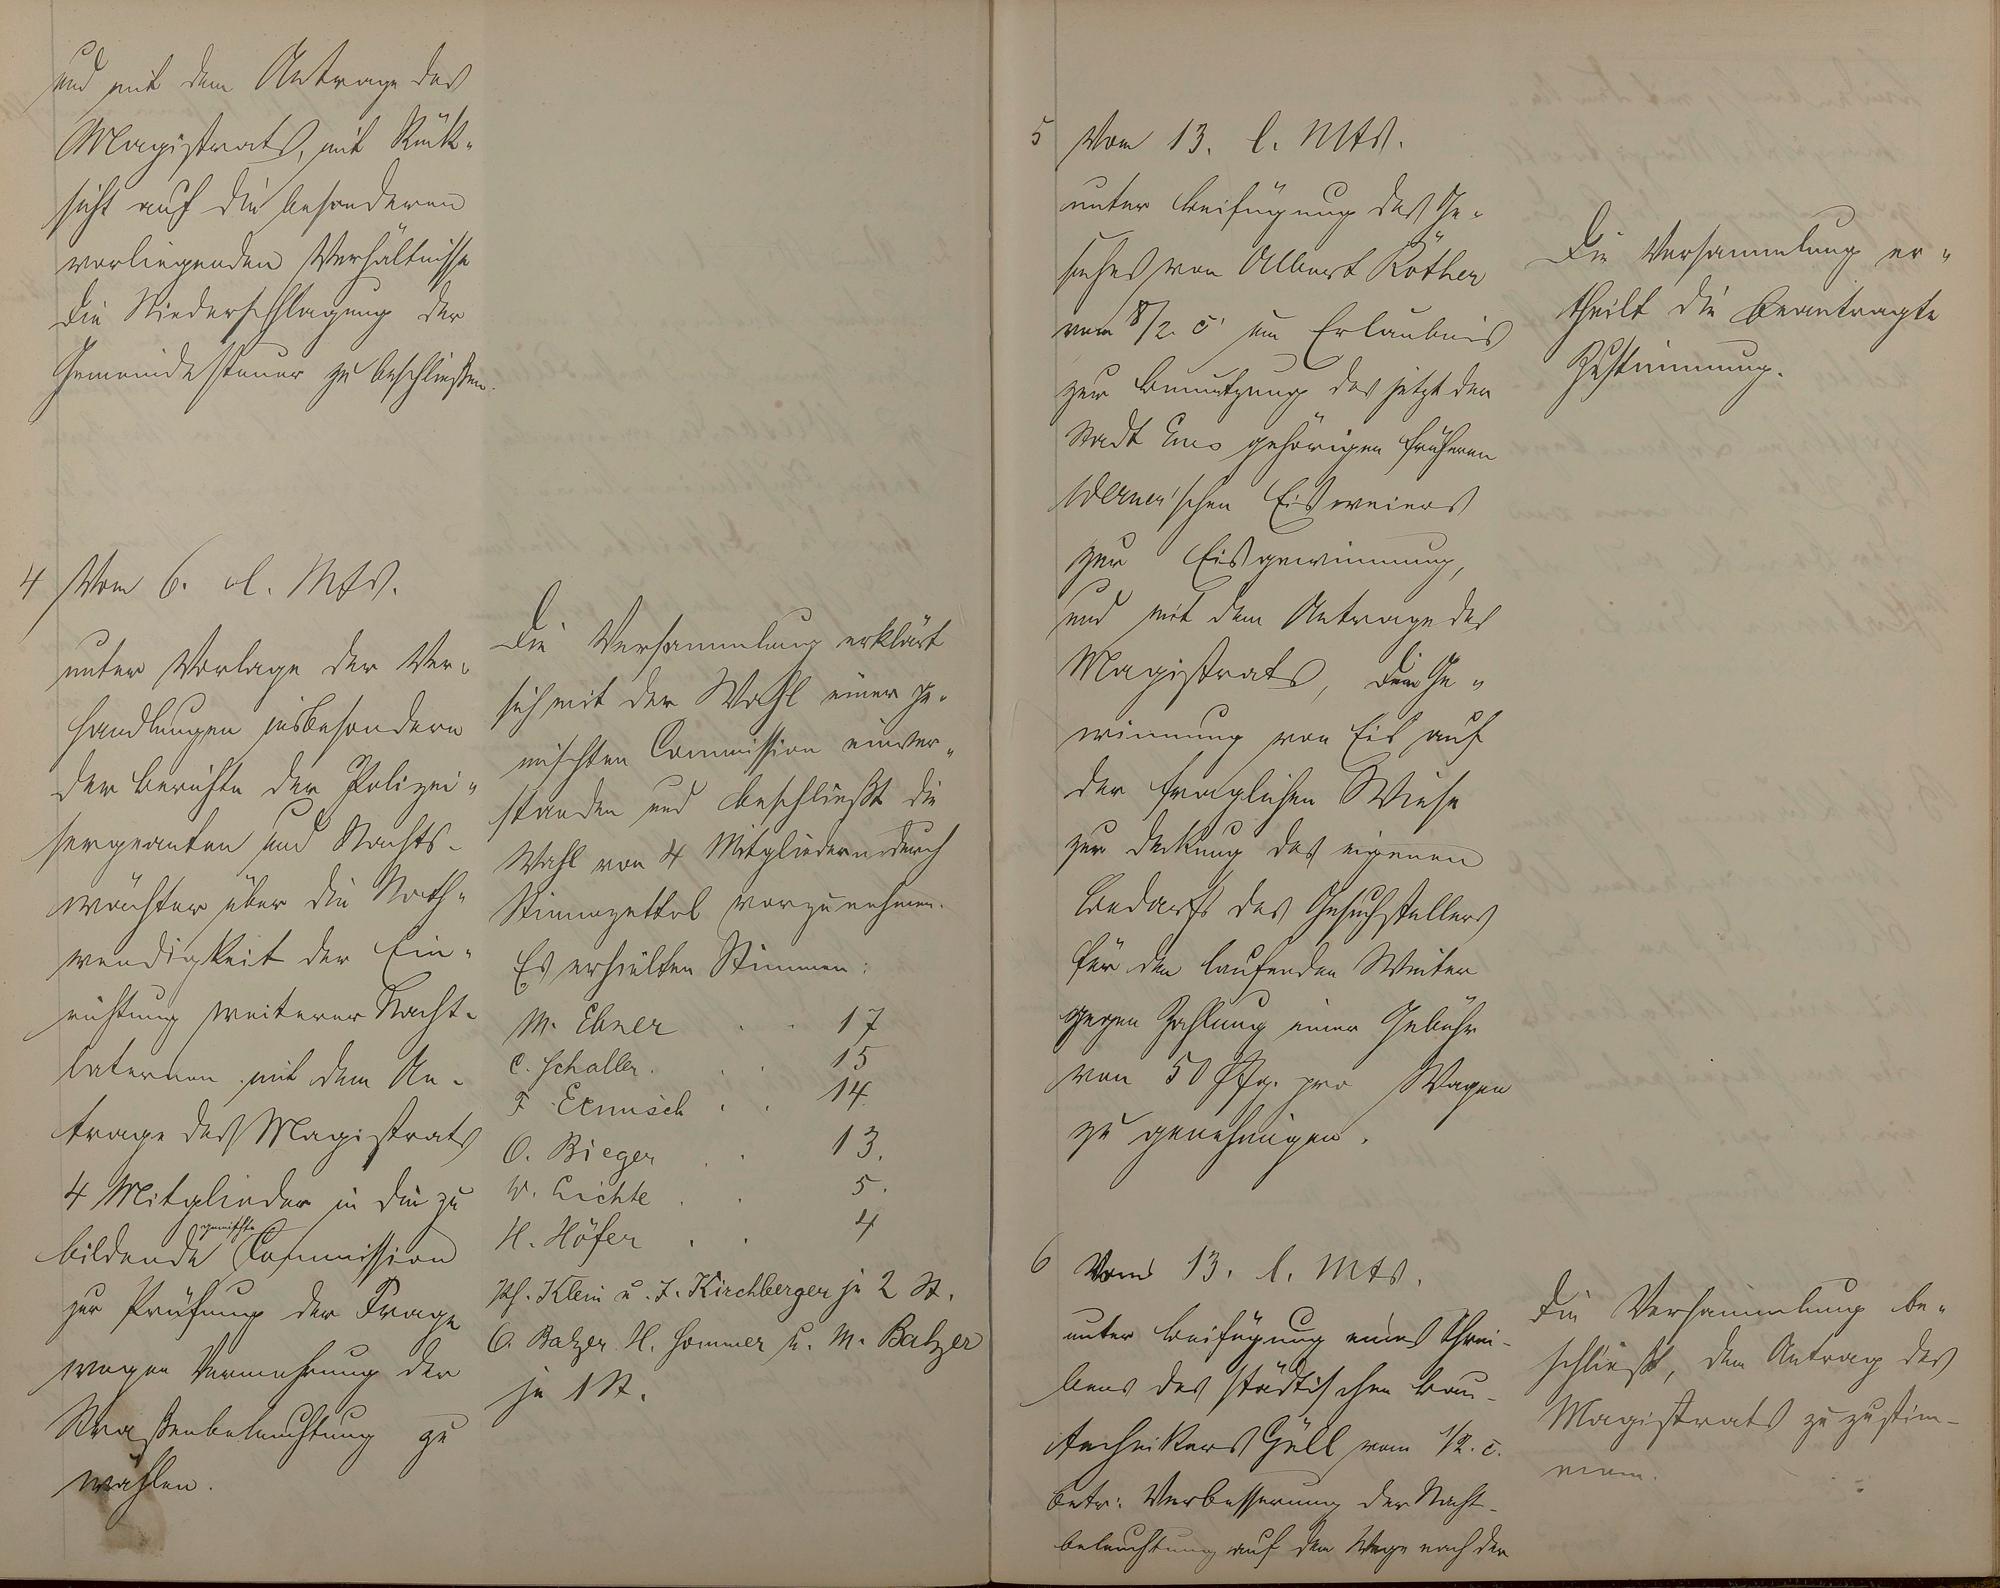 und mit dem Antrage des
Magistrats, mit Rück-
sicht auf die besonderen
vorliegenden Verhältnisse
die Niederschlagung der
Gemeindesteuer zu beschließen.
4 Vom 6. d. Mts.
unter Vorlage der Ver-
handlungen insbesondern
der Berichte der Polizei-
sergeanten und Nachts-
wächter über die Noth-
wendigkeit der Ein-
richtung weiterer Nacht-
laternen mit dem An-
trage des Magistrats
4 Mitglieder in die zu
bildende gemischte Commission
zur Prüfung der Frage
wegen Vermehrung der
Straßenbeleuchtung zu
wählen.
Die Versammlung erklärt
sich mit der Wahl einer ge-
mischten Commission einver-
standen und beschließt die
Wahl von 4 Mitgliedern durch
Stimmzettel vorzunehmen.
Es erhielten Stimmen:
M. Ebner . . 17
C. Schaller . . 15
F. Ermisch . . 14
O. Bieger . . 13.
W. Lichte . . 5.
H. Höfer . . 4
Ph. Klein u. J. Kirchberger je 2 St.
O. Balzer H. Sommer u. M. Balzer
je 1 St.
5 Vom 13. l. Mts.
unter Beifügung des Ge-
suches von Albert Röther
vom 8/2. c. um Erlaubnis
zur Benutzung des jetzt der
Stadt Ems gehörigen früheren
Werner'schen Eisweiers
zur Eisgewinnung,
und mit dem Antrage des
Magistrats, die Ge-
winnung von Eis auf
der fraglichen Wiese
zur Deckung des eigenen
Bedarfs des Gesuchstellers
für den laufenden Winter
gegen Zahlung einer Gebühr
von 50 Pfg. pro Wagen
zu genehmigen.
Die Versammlung er-
theilt die beantragte
Zustimmung.
6 Vom 13. l. Mts.
unter Beifügung eines Schrei-
bens des städtischen Bau-
technikers Güll vom 1/2. c.
betr: Verbesserung der Nacht-
beleuchtung auf dem Wege nach der
Die Versammlung be-
schließt, dem Antrag des
Magistrats zuzustim-
men.